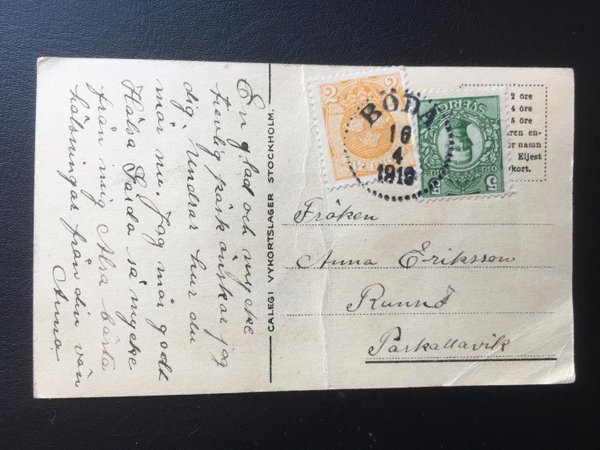 En glad och mycke
trevlig påsk önskar jag
dig. undrar hur du
mår nu. Jag mår godt
Hälsa Gerda så mycke
från mig Alra bästa
hälsningar från din vän
Anna.
CALEGI VYKORTSLAGER STOCKHOLM.
2
BÖDA
16
4
1919
SVERIGE
5
2 öre
öre
öre
ren en-
r namn
Eljest
kort.
Fröken
Anna Eriksson
Runnö
Påskallavik